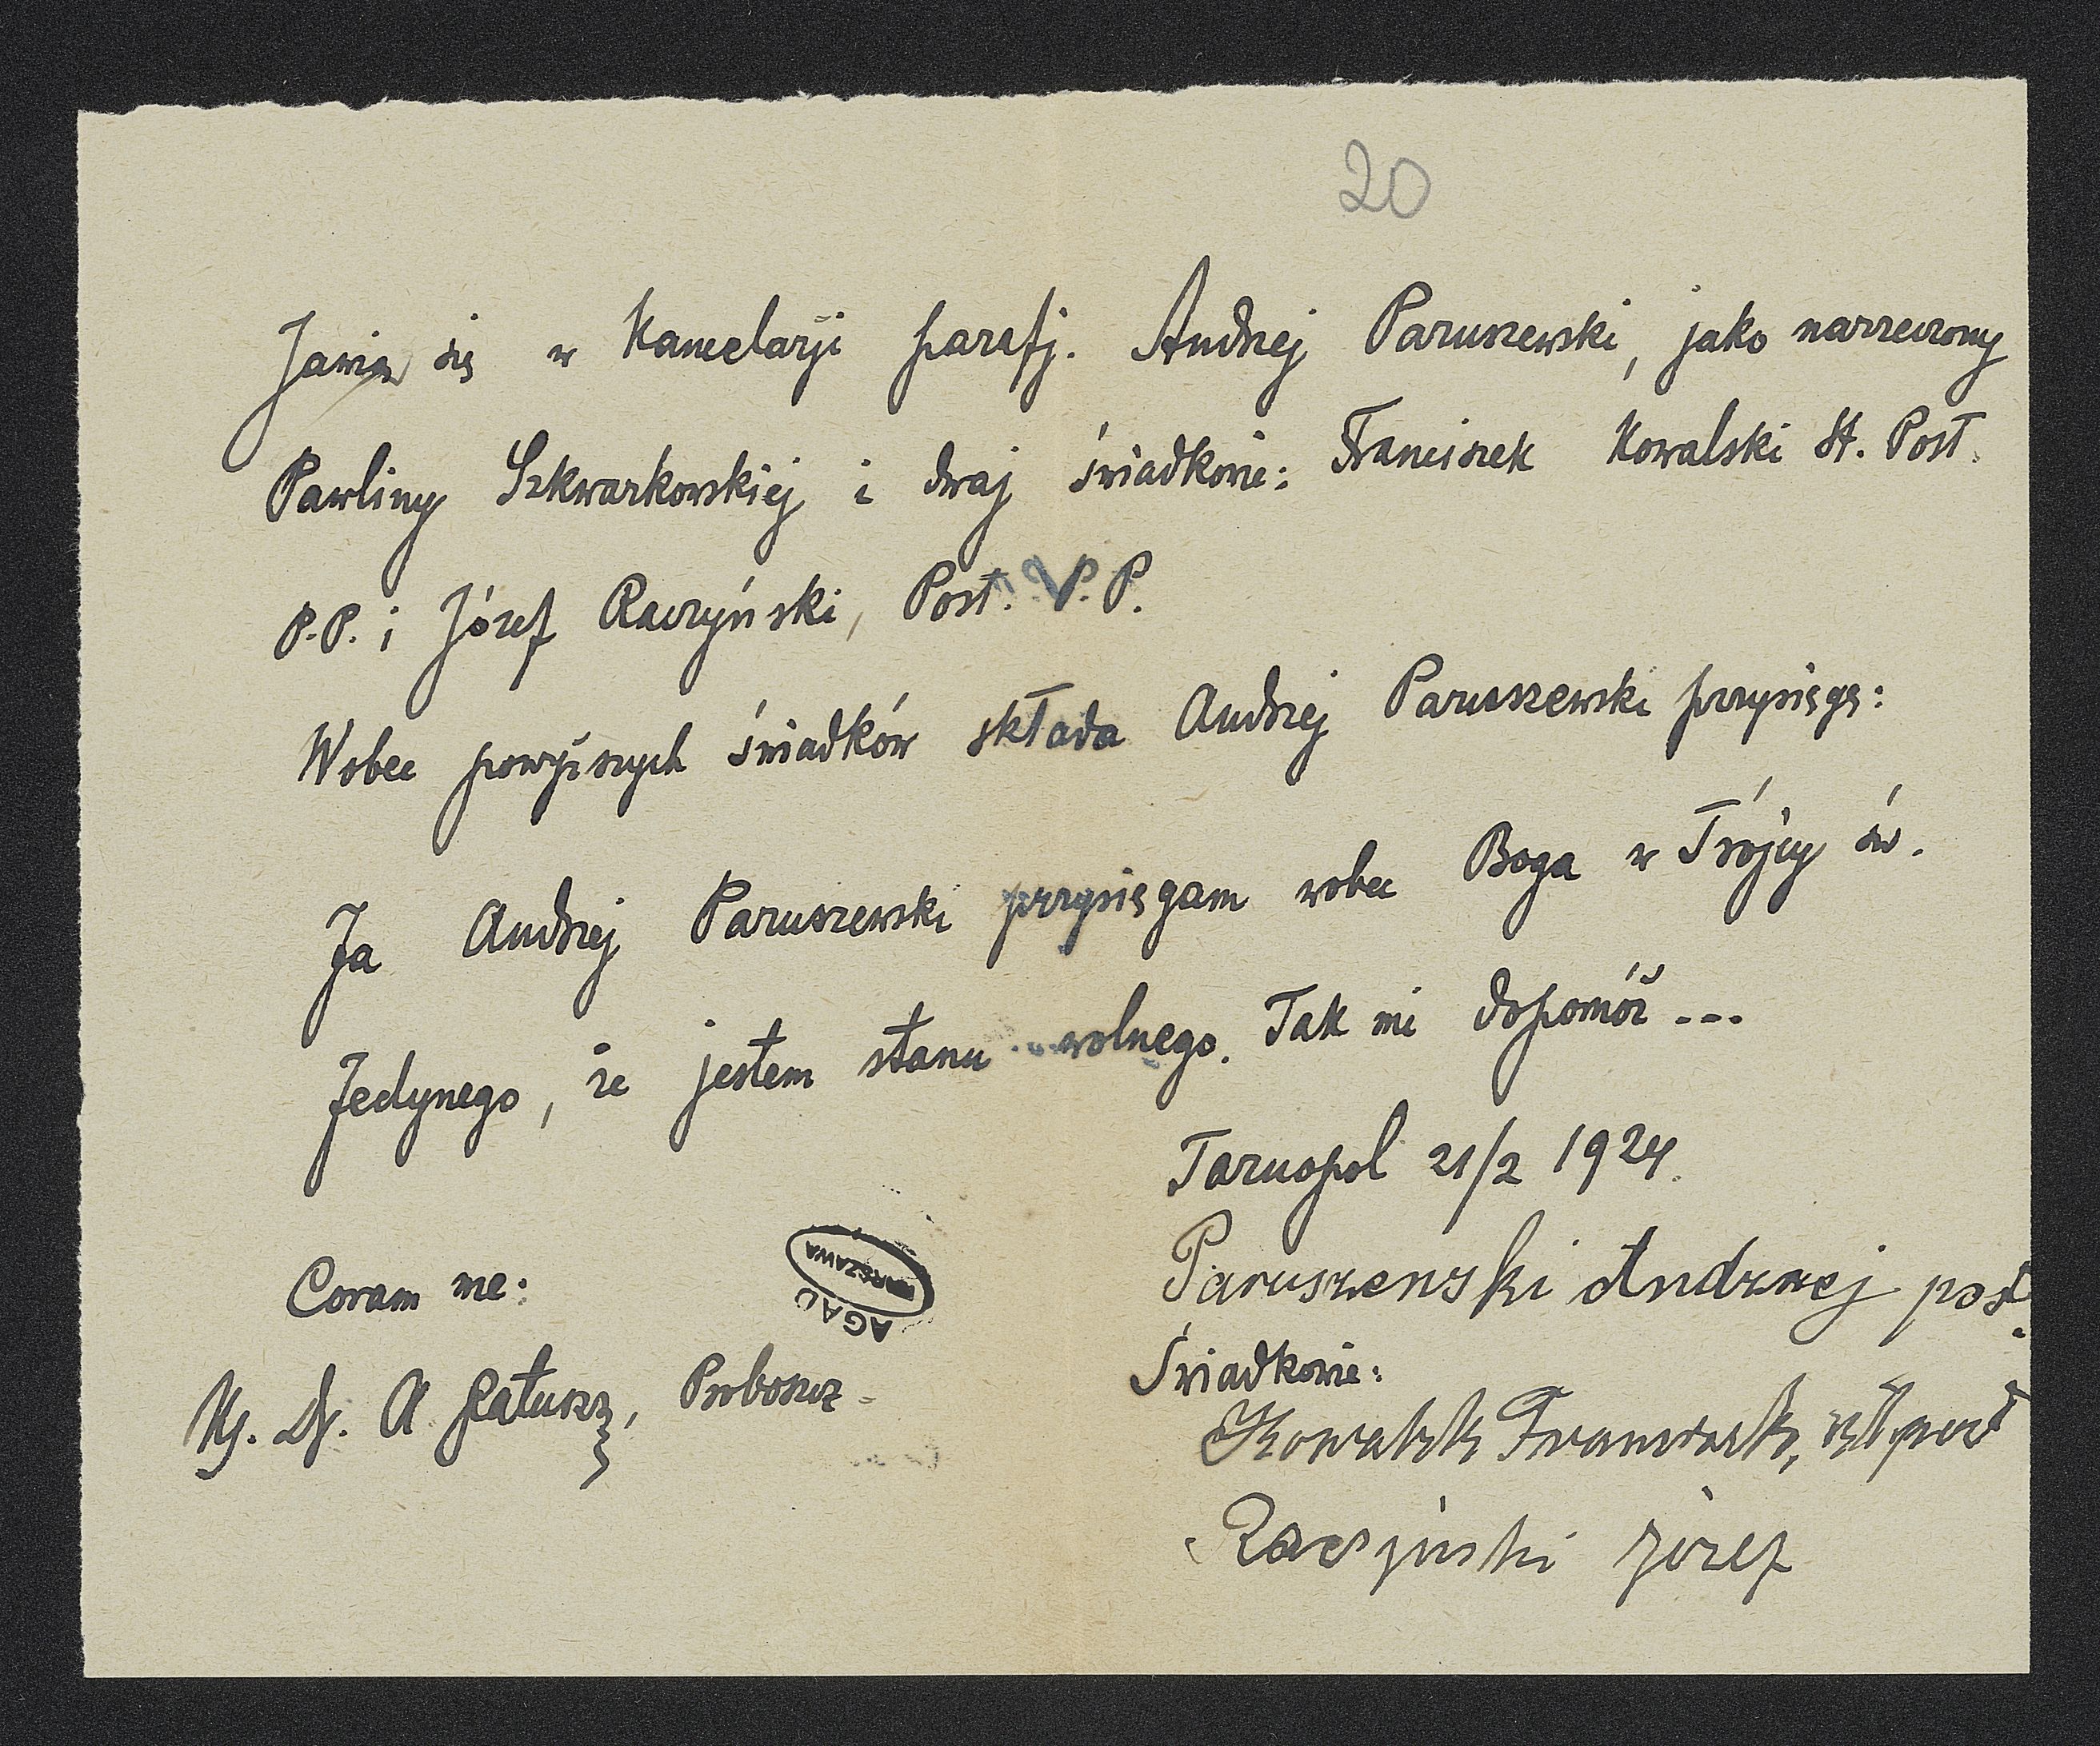 20
Jawią się w Kancelarji parafj. Andrzej Paruszewski, jako narzeczony
Pawliny Szkwarkowskiej i dwaj świadkowie: Franciszek Kowalski St. Post.
P.P. i Józef Raczyński, Post. P.P.
Wobec powyższych świadków składa Andrzej Paruszewski przysięgę:
Ja Andrzej Paruszewski przysięgam wobec Boga w Trójcy św.
Jedynego, że jestem stanu wolnego. Tak mi dopomóż ---
Tarnopol 21/2 1924.
Coram me:
AGAD
WARSZAWA
Paruszewski Andrzej post.
Świadkowie:
Ks. Dr. A Ratuszny, Proboszcz
Kowalski Franciszek, st post
Raczyński Józef